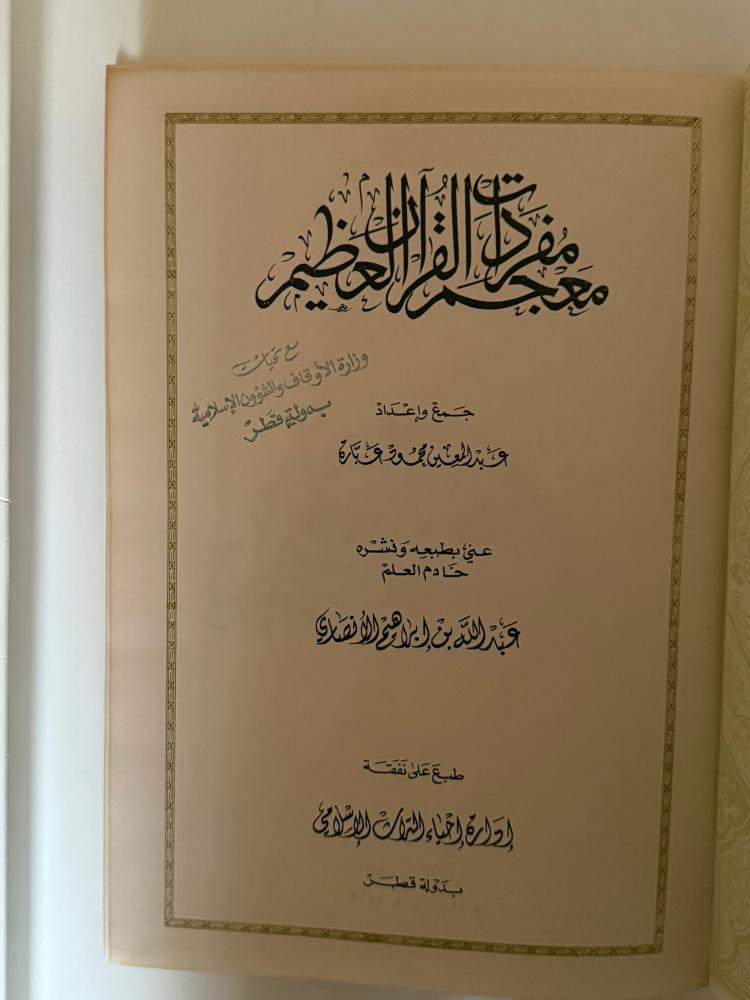 معجم مفردات القرآن العظيم
مع تحيات
وزارة الأوقاف والشؤون الإسلامية
بدولة قطر
جمع وإعداد
عبد المعين محمود عبارة
عني بطبعه ونشره
خادم العلم
عبد الله بن إبراهيم الأنصاري
طبع على نفقة
إدارة إحياء التراث الإسلامي
بدولة قطر